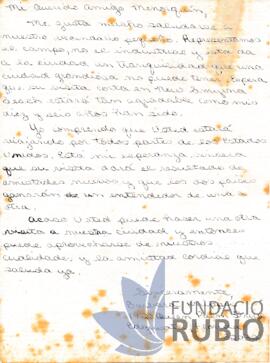 Mi Querido Amigo
Me gusta mucho saludarle
nuestro vecindario pequeño. Representamos
el campo, no el industrial y esta da
a la ciudad un tranquilidad que una
ciudad grandiosa no puede tener. Espero
que su visita corta en New Smyrna
Beach estará tan agradable como mis
diez y seis años han sido.
Yo comprendo que Usted estará
viajando por todas partes de los Estados
Unidos. Esta mi esperanza sincera
que su visita dará el resultado de
amistades nuevas y que los dos países
ganarán de un entendedor de una a
otra.
Acaso Usted puede hacer una otra
visita a nuestra ciudad y entonces
puede aprovecharse de nuestras
cualidades y la amistad cordial que
saluda ya.
Sinceramente
FUNDACIÓ
RUBIÓ